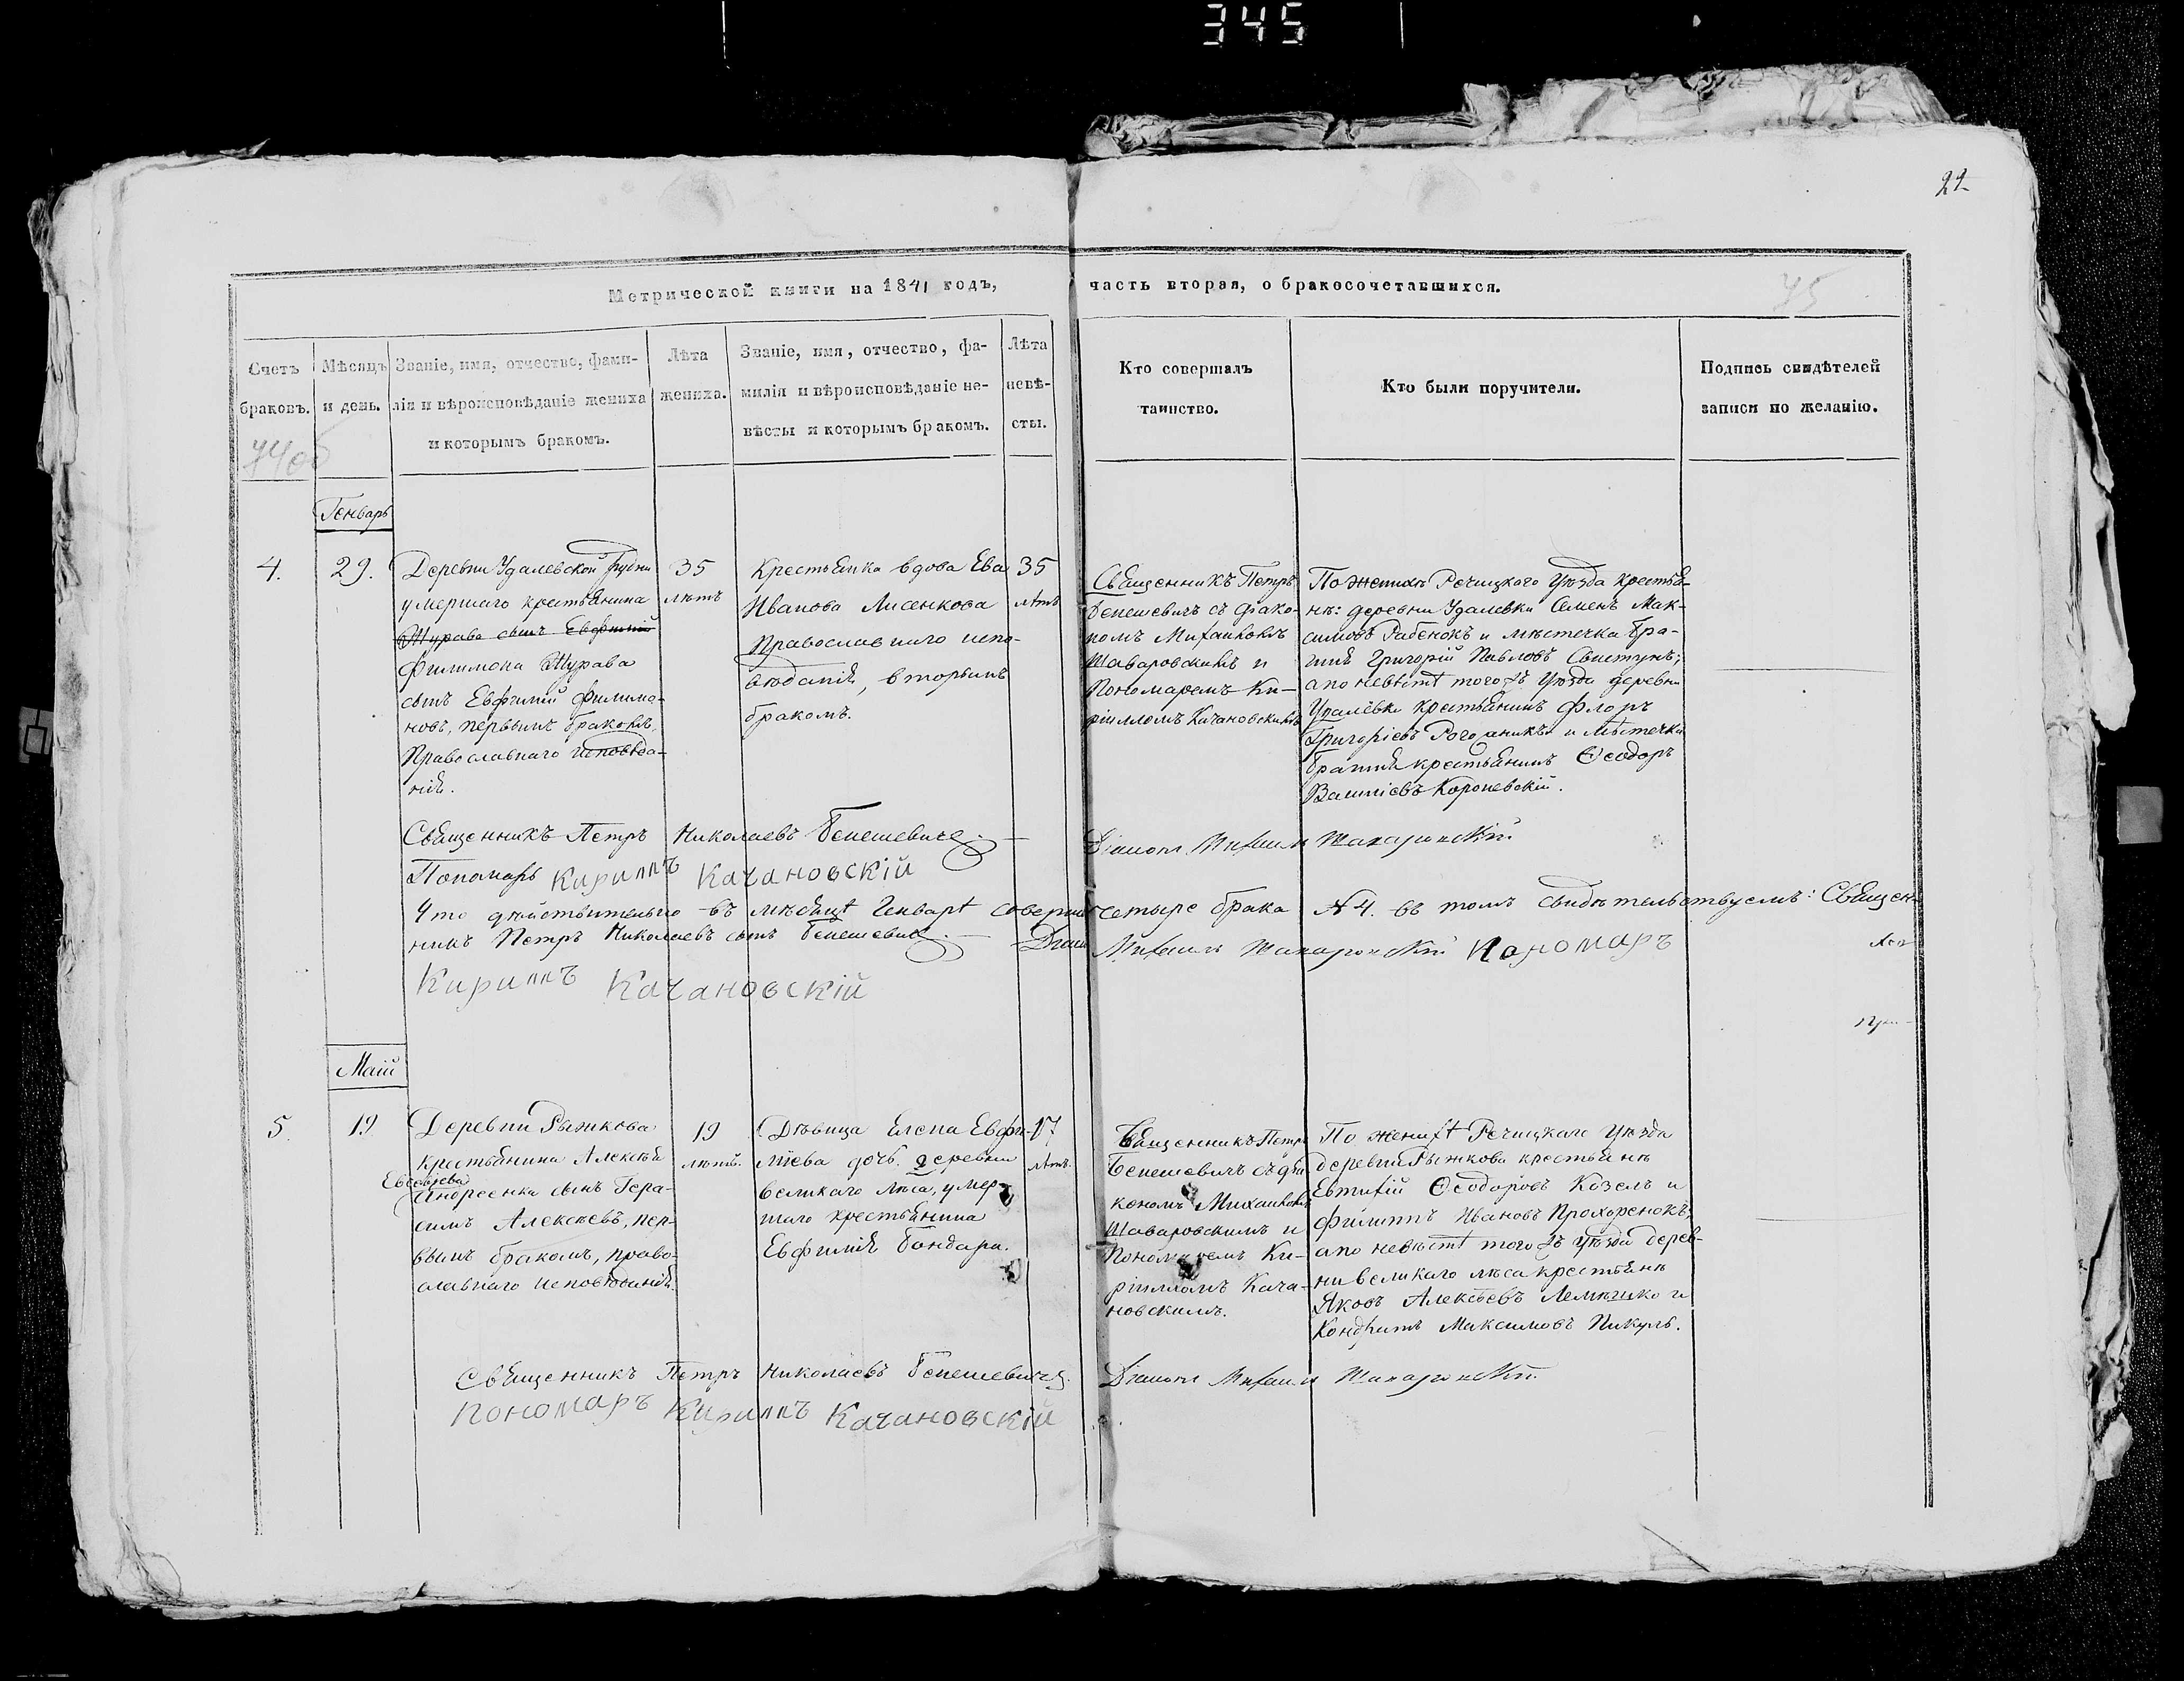 345
22
Метрической книги на 1841 годъ,
часть вторая, о бракосочетавшихся.
75
Счетъ браковъ.
Мѣсяцъ и день.
Званіе, имя, отчество, фами-
лія и вѣроисповѣданіе жениха
и которымъ бракомъ.
Лѣта
жениха.
Званіе, имя, отчество, фа-
милія и вѣроисповѣданіе не-
вѣсты и которымъ бракомъ.
Лѣта
невѣ-
сты.
Кто совершалъ
таинство.
Кто были поручители.
Подпись свидѣтелей
записи по желанію.
Генварь
4.
29.
Деревни Удалевской Рудни
умершаго крестьянина
Журава сынъ Евфимій
Филимона Журава
сынъ Евфимій Филимо-
новъ, первымъ бракомъ,
Православнаго исповѣда-
нія.
35
лѣтъ
Крестьянка вдова Ева
Иванова Лисенкова
Православнаго испо-
вѣданія, вторымъ
бракомъ.
35
лѣтъ
Священникъ Петръ
Бенешевичъ съ діако-
номъ Михаиломъ
Шаваровскимъ и
Пономаремъ Ки-
рилломъ Качановскимъ
По женихѣ Речицкаго Уѣзда крестья-
нѣ: деревни Удалевки Семенъ Мак-
симовъ Рабенокъ и мѣстечка Бра-
гиня Григорій Павловъ Свистунъ;
а по невѣстѣ того жъ Уѣзда деревни
крестьянинъ Флоръ
Григоріевъ и мѣстечка
Брагиня крестьянинъ Ѳеодоръ
Короневскій.
Священникъ Петръ Николаевъ Бенешевичъ.
Діаконъ Михаилъ Шаваровскій
Пономарь Кириллъ Качановскій
Что дѣйствительно въ мѣсяцѣ Генварѣ соверш четыре брака № 4. въ томъ свидѣтельствуемъ: Священ-
никъ Петръ Николаевъ сынъ Бенешевичъ. Діаконъ Михаилъ Шаваровскій Пономарь
Кириллъ Качановскій
Маій
5.
19
Деревни Рыжкова
крестьянина Алексѣя
Евсевьева
Андреенка сынъ Гера-
симъ Алексѣевъ, пер-
вымъ бракомъ, право-
славнаго исповѣданія.
19
лѣтъ.
Дѣвица Елена Евфи-
міева дочь деревни
Великаго лѣса, умер-
шаго крестьянина
Евфимія Бондаря.
17
лѣтъ.
Священникъ Петръ
Бенешевичъ съ діа-
кономъ Михаиломъ
Шаваровскимъ и
Пономаремъ Ки-
рилломъ Кача-
новскимъ.
По женихѣ Речицкаго Уѣзда
деревни Рыжкова крестьянѣ
Евтихій Ѳеодоровъ Козелъ и
Филиппъ Ивановъ Прохоренокъ,
а по невѣстѣ того жъ Уѣзда дерев-
ни великаго лѣса крестьянѣ
Яковъ Алексѣевъ Лемешко и
Кондратъ Максимовъ Пикуль.
Священникъ Петръ Николаевъ Бенешевичъ.
Діаконъ Михаилъ Шаваровскій
Пономарь Кириллъ Качановскій